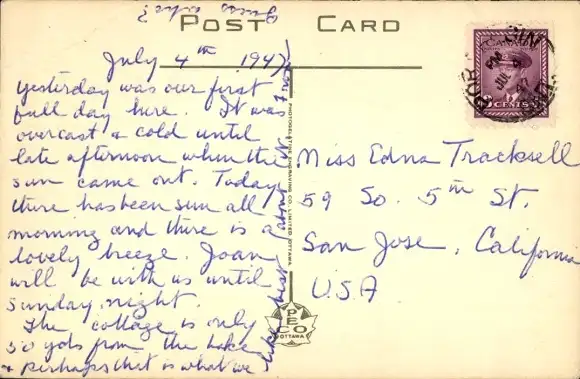 Guess who?
POST CARD
July 4th 1947
yesterday was our first
full day here. It was
overcast & cold until
late afternoon when the
sun came out. Today
there has been sun all
morning and there is a
lovely breeze. Joan
will be with us until
Sunday night.
The cottage is only
50 yds from the lake
& perhaps that is what we
like best about it.
PHOTOGELATINE ENGRAVING CO. LIMITED, OTTAWA
PECO
OTTAWA
CANADA
CENTS
JUL
Miss Edna Tracksell
59 So. 5th St.
San Jose, California
U.S.A